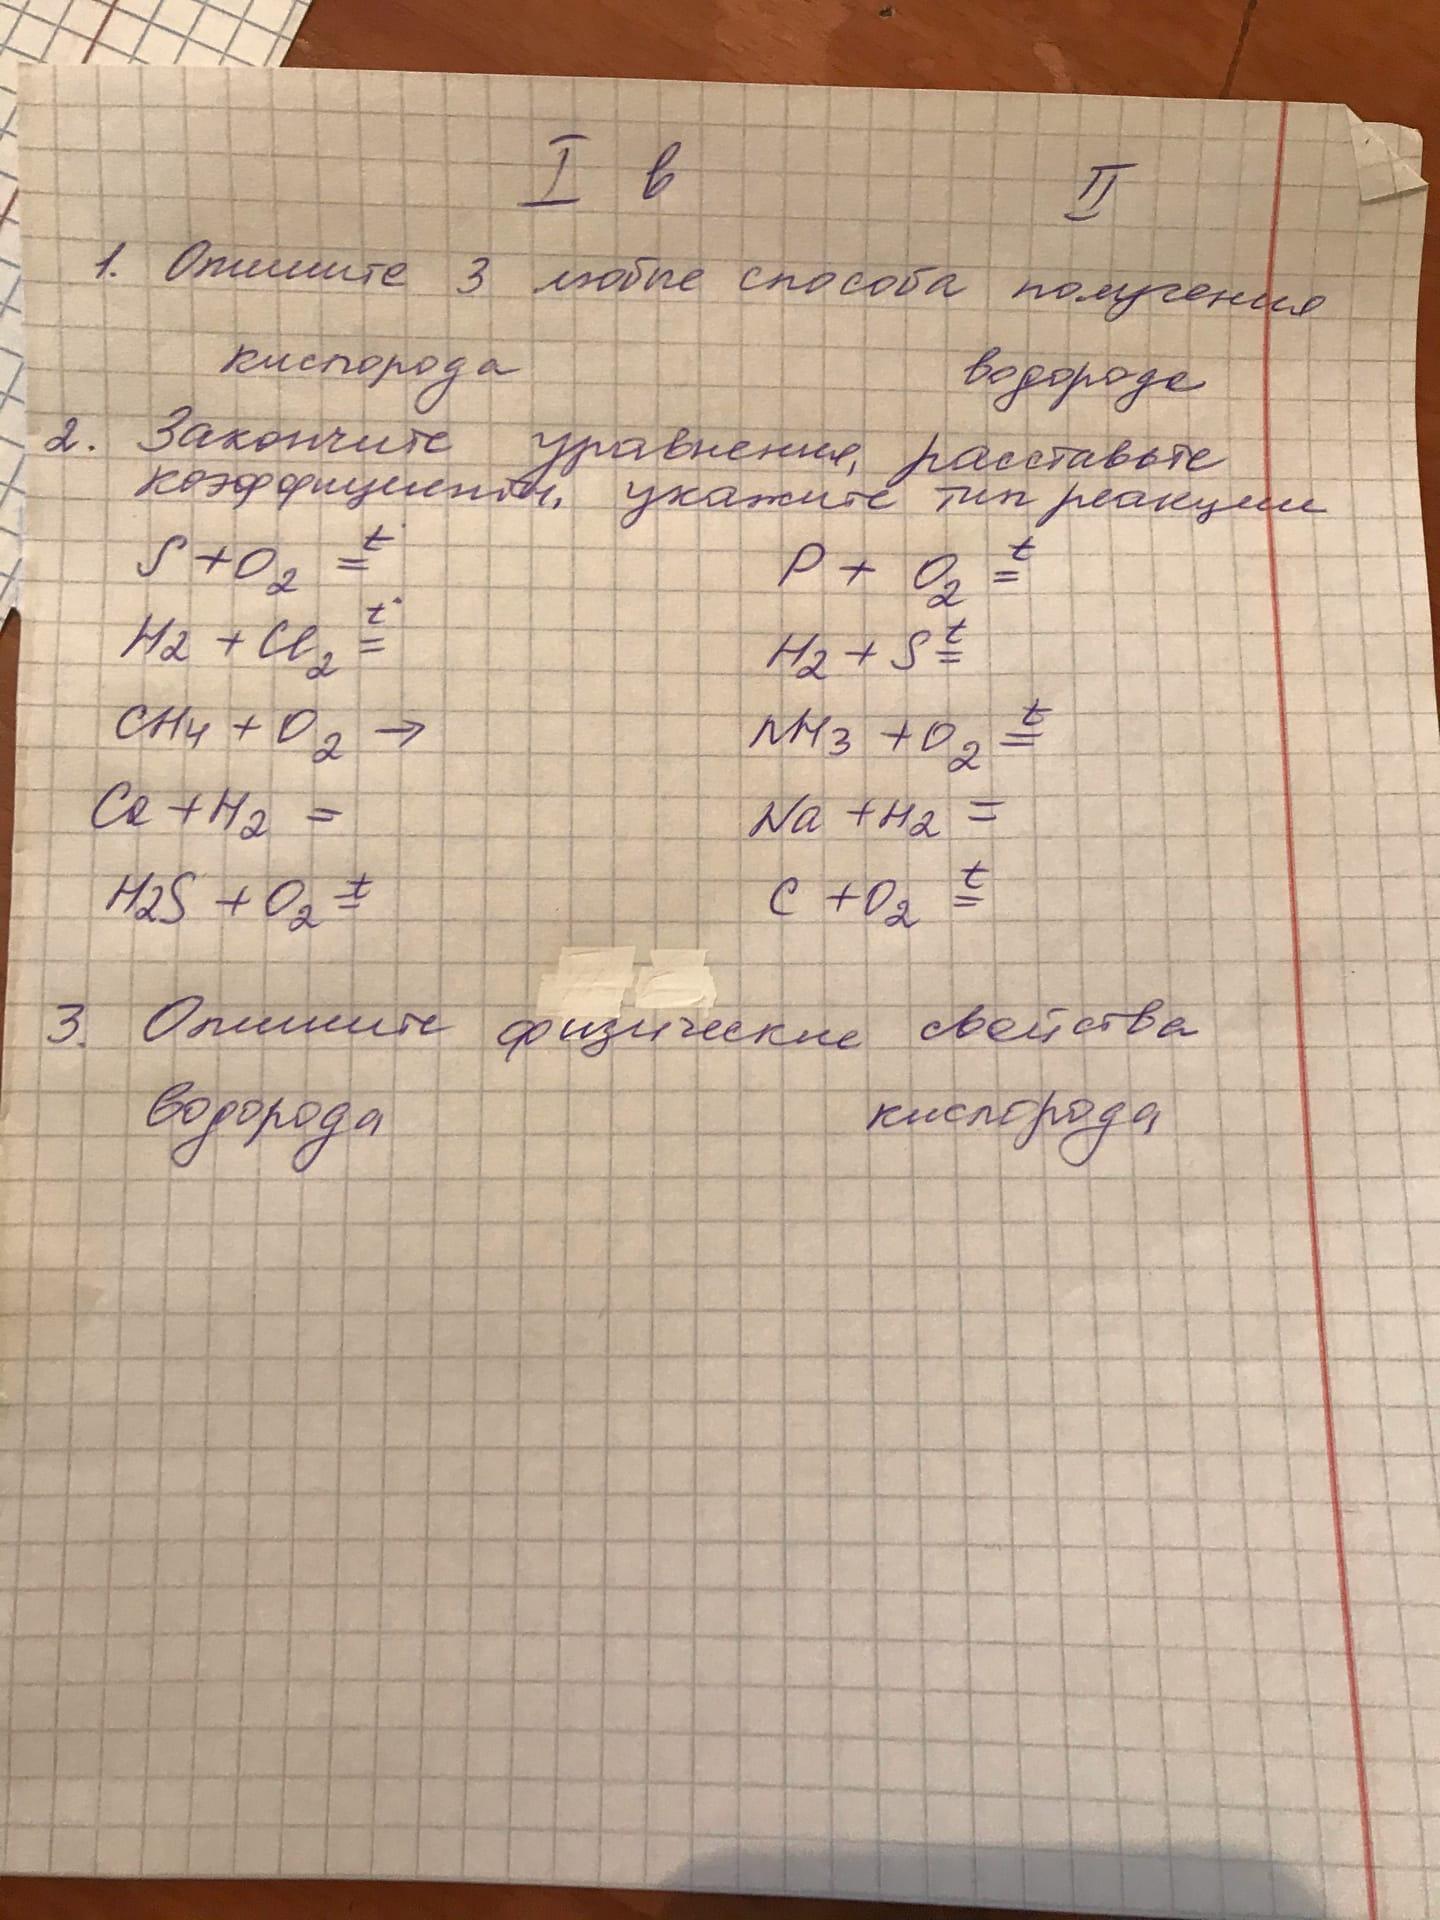 I в II
1. Опишите 3 любые способа получения
кислорода водорода
2. Закончите уравнения, расставьте
коэффициенты, укажите тип реакции
S + O2 =t° P + O2 =t
H2 + Cl2 =t° H2 + S =t
CH4 + O2 → NH3 + O2 =t
Ca + H2 = Na + H2 =
H2S + O2 =t C + O2 =t
3. Опишите физические свойства
водорода кислорода